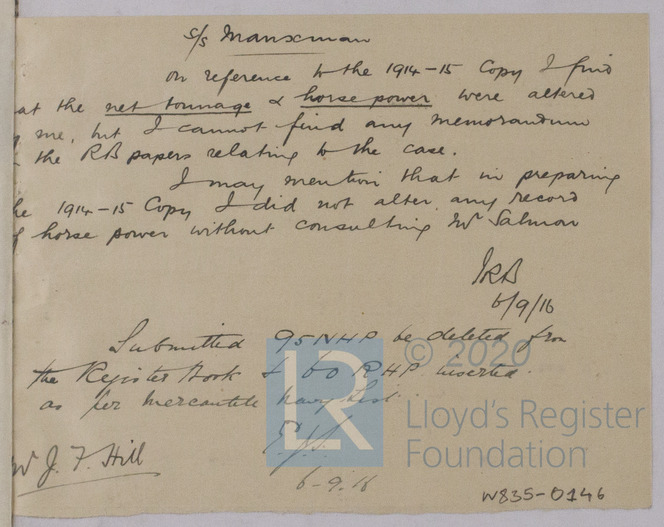 s/s Manxman
On reference to the 1914-15 Copy I find
at the net tonnage & horse power were altered
me, but I cannot find any memorandum
the RB papers relating to the case.
I may mention that in preparing
he 1914-15 Copy I did not alter any record
horse power without consulting Mr Salmon
JRB
6/9/16
Submitted 95NHP be deleted from
the Register Book & 60 RHP inserted
as per Mercantile Navy List.
Mr J. F. Hill
6-9.16
W835-0146
© 2020
LR
Lloyd's Register
Foundation